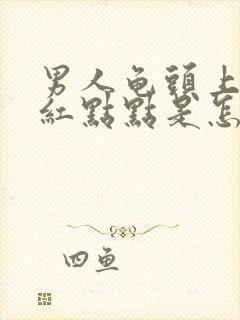 男人龟頭上
紅點點是怎
四鱼